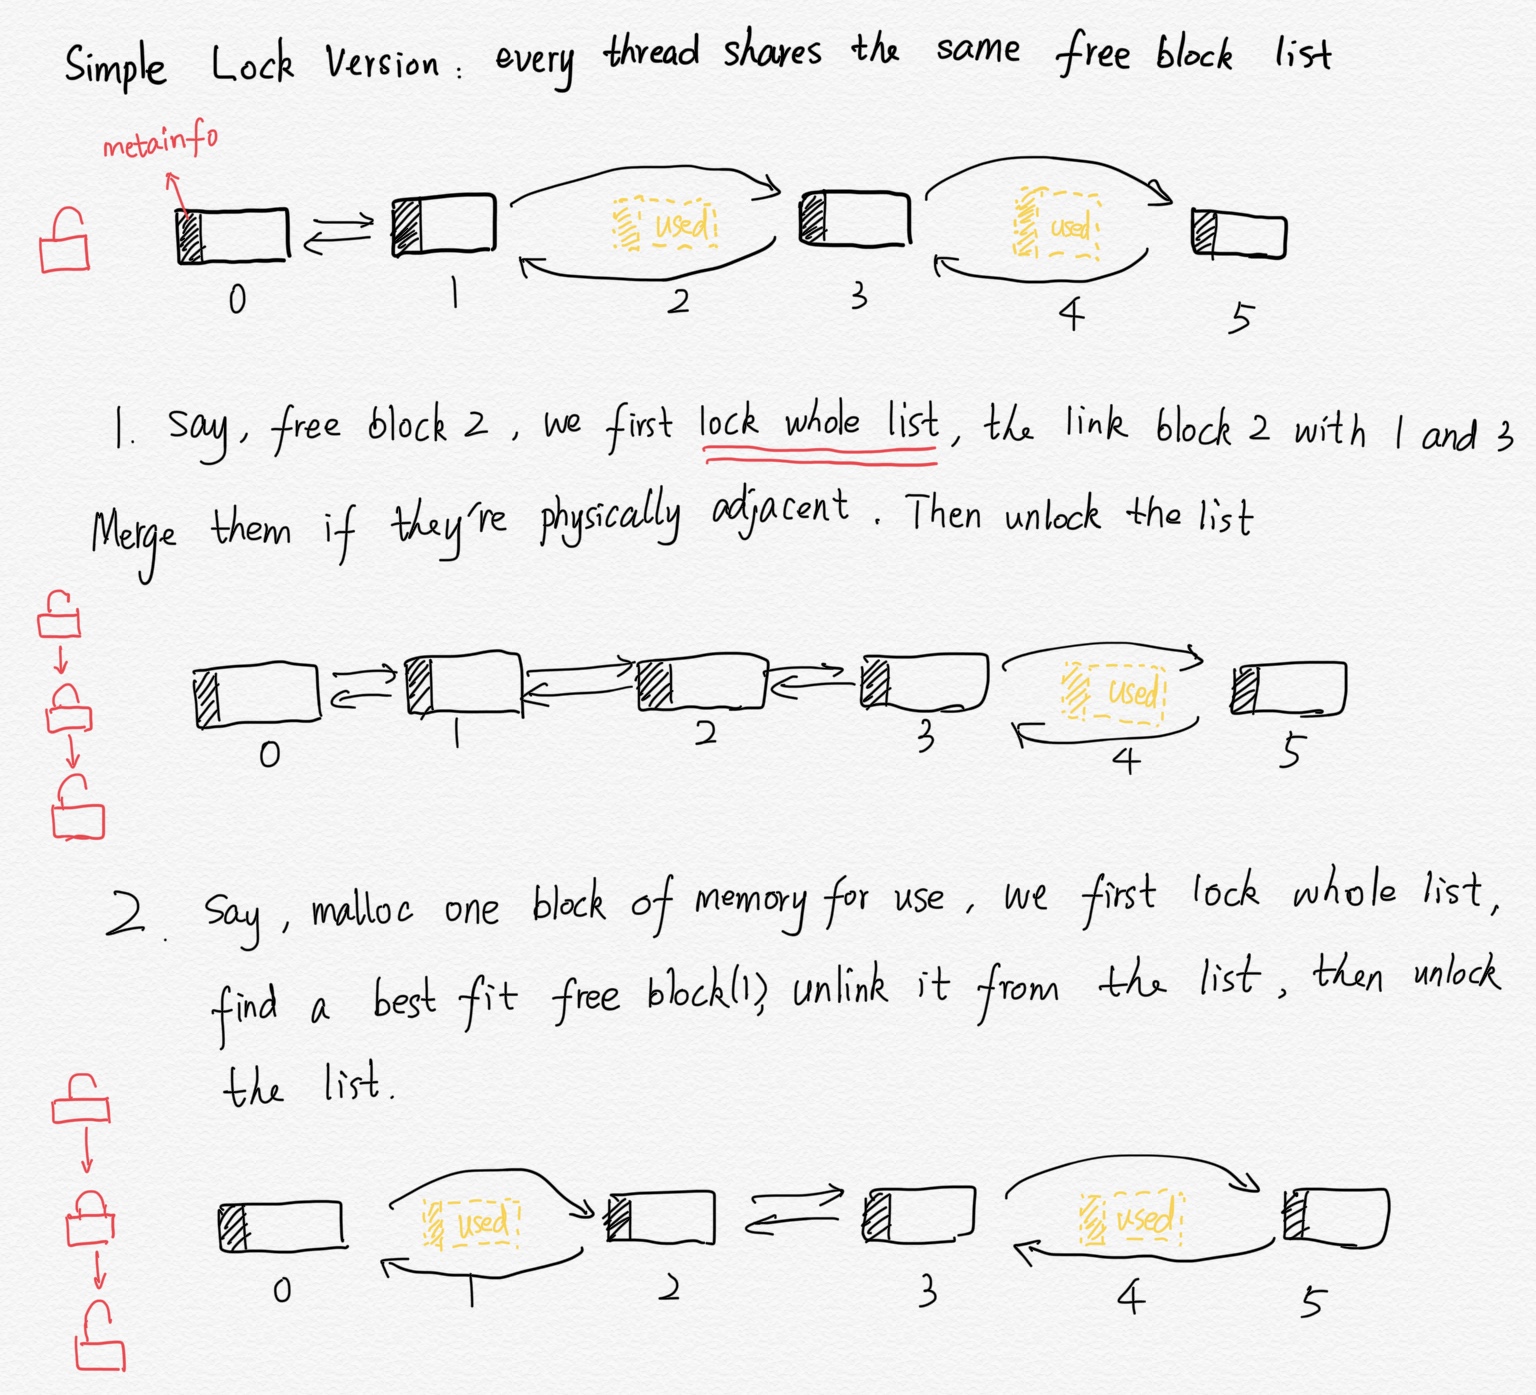 Simple Lock Version: every thread shares the same free block list
metainfo
used used
0 1 2 3 4 5
1. Say, free block 2, we first lock whole list, the link block 2 with 1 and 3
Merge them if they're physically adjacent. Then unlock the list
used
0 1 2 3 4 5
2. Say, malloc one block of memory for use, we first lock whole list,
find a best fit free block(1), unlink it from the list, then unlock
the list.
used used
0 1 2 3 4 5